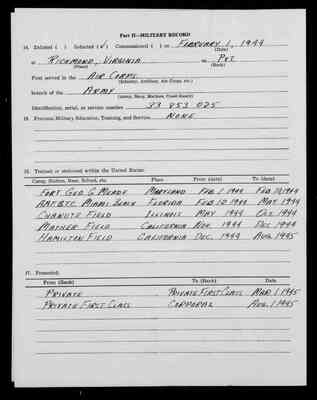 Part II—MILITARY RECORD
14. Enlisted ( ) Inducted (✓) Commissioned ( ) on FEBRUARY 1, 1944
at RICHMOND, VIRGINIA as PVT
(Place) (Rank)
First served in the AIR CORPS
(Infantry, Artillery, Air Corps, etc.)
branch of the ARMY
(Army, Navy, Marines, Coast Guard)
Identification, serial, or service number 33 853 025
15. Previous Military Education, Training, and Service NONE
16. Trained or stationed within the United States:
Camp, Station, Base, School, etc. Place From (date) To (date)
FORT GEO G. MEADE MARYLAND FEB 1 1944 FEB 10, 1944
AAF.BTC. MIAMI BEACH FLORIDA FEB 10 1944 MAY 1944
CHANUTE FIELD ILLINOIS MAY 1944 OCT. 1944
MATHER FIELD CALIFORNIA NOV. 1944 DEC 1944
HAMILTON FIELD CALIFORNIA DEC. 1944 AUG. 1945
17. Promoted:
From (Rank) To (Rank) Date
PRIVATE PRIVATE FIRST CLASS MAR. 1 1945
PRIVATE FIRST CLASS CORPORAL AUG. 1 1945